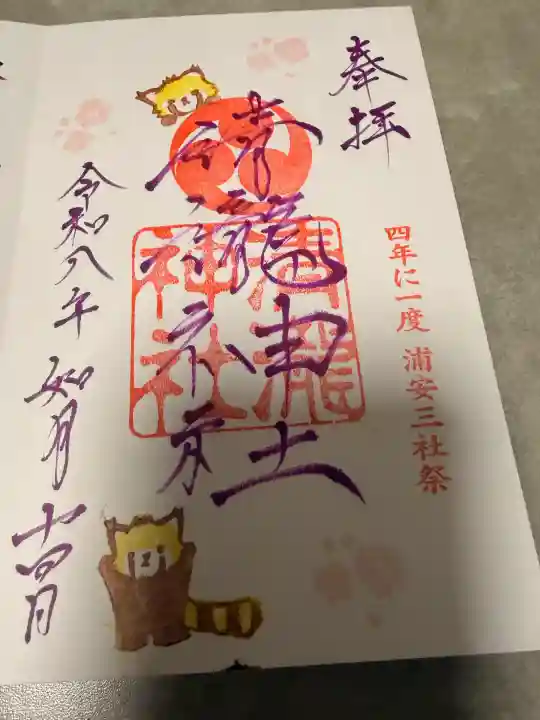 奉拝
四年に一度 浦安三社祭
清瀧神社
清瀧
神社
令和八年 如月 十四日